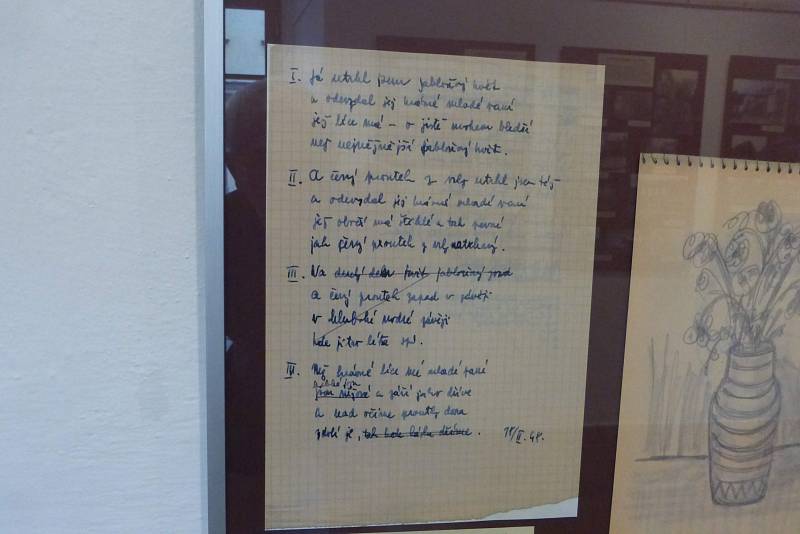 I. Já utrhl jsem jabloňový květ
a odevzdal jej krásné mladé paní
její líce má – o jistě mnohem bledší
než nejněžnější jabloňový květ.
II. A černý proutek z vrby utrhl jsem též
a odevzdal jej krásné mladé paní
její obočí má štíhlé a tak pevné
jak černý proutek z vrby natrhaný.
III. Na jabloňový
a černý proutek zapad v závěji
v hluboké modré závěji
kde jitro léta spí.
Než krásné líce mé mladé paní
a září jako dříve
a nad očima proutky dva
zdobí je, tak kde láska dříme. II. 48.